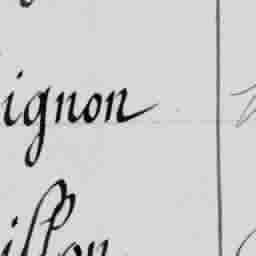 ignon
illon